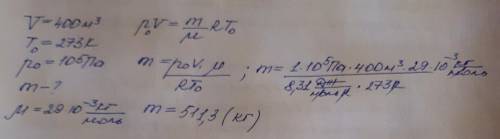 V = 400 м³
T₀ = 273 К
p₀ = 10⁵ Па
m - ?
μ = 29·10⁻³ кг/моль
p₀V = m/μ RT₀
m = p₀V·μ/RT₀ ; m = 1·10⁵Па·400м³·29·10⁻³ кг/моль / 8,31 Дж/моль·К · 273К
m = 511,3 (кг)